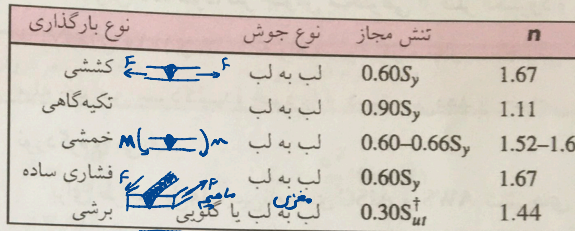 نوع بارگذاری نوع جوش تنش مجاز n
کششی F F لب به لب 0.60Sy 1.67
تکیه‌گاهی لب به لب 0.90Sy 1.11
خمشی M M لب به لب 0.60–0.66Sy 1.52–1.6
فشاری ساده لب به لب 0.60Sy 1.67
F F ماهیچه مغزی
برشی لب به لب یا گلویی 0.30Sut† 1.44